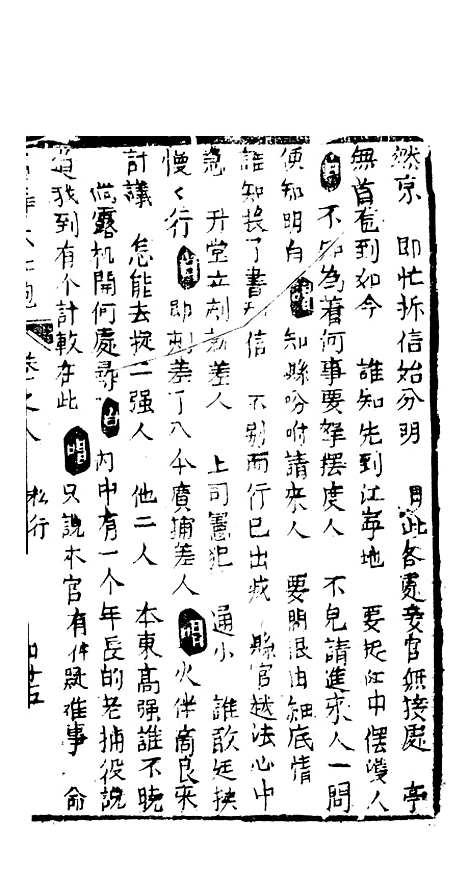 然京 即忙拆信始分明 因此各處妾官無接處 亭
無首苞到如今 誰知先到江寧地 要捉江中擺渡人
唱 不知為着何事要拏擺度人 不見請進來人一問
便知明白 唱 知縣吩咐請來人 要問根由細底情
誰知投了書和信 不别而行已出城 縣官越法心中
急 升堂立刻就差人 上司憲犯通小 誰敢廷挨
慢〻行 白 即刻差了八个廣捕差人 唱 火伴商良來
計議 怎能去捉二强人 他二人 本東高强誰不曉
尚露机開何處尋 白 内中有一个年長的老捕役説
道我到有个計較在此 唱 只説本官有件疑难事 俞
卷之八 松行